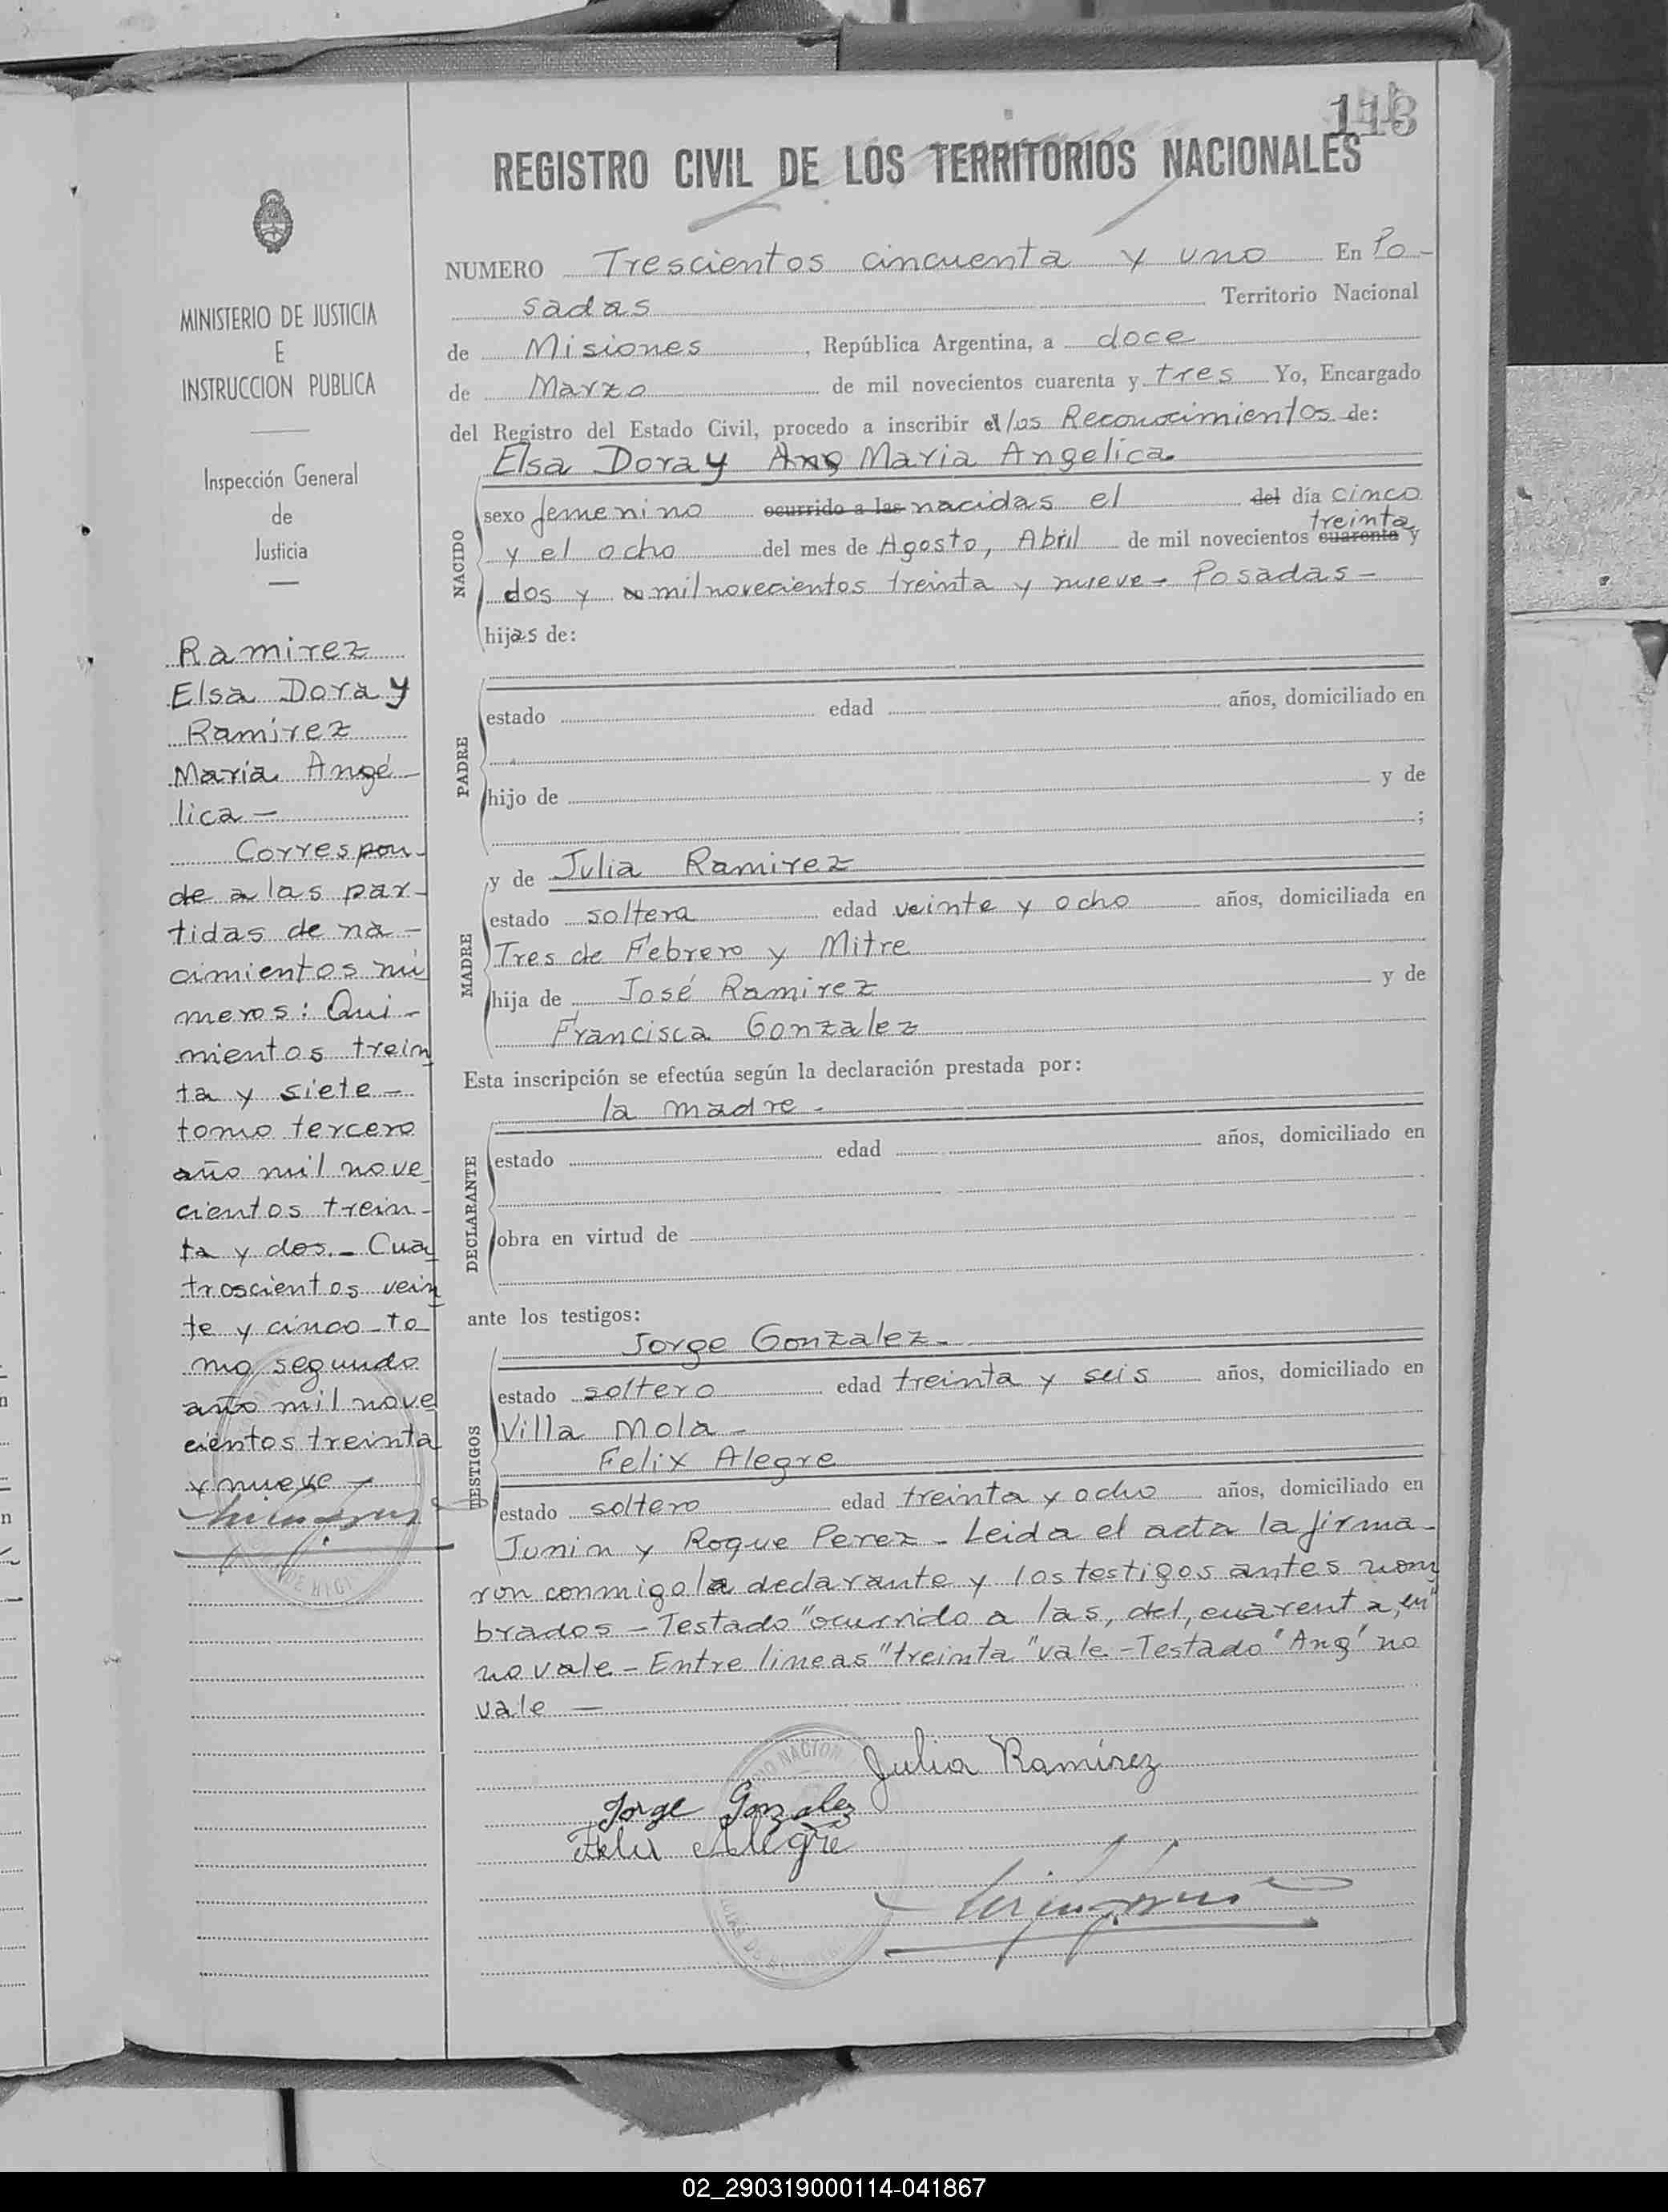 113
REGISTRO CIVIL DE LOS TERRITORIOS NACIONALES
MINISTERIO DE JUSTICIA
E
INSTRUCCION PUBLICA
Inspección General
de
Justicia
Ramirez
Elsa Dora y
Ramirez
Maria Angé-
lica -
Correspon-
de a las par-
tidas de na-
cimientos nú
meros: Qui-
nientos trein
ta y siete -
tomo tercero
año mil nove
cientos trein-
ta y dos. - Cua
troscientos vein
te y cinco - to
mo segundo
año mil nove
cientos treinta
y nueve -
NUMERO Trescientos cincuenta y uno En Po-
sadas Territorio Nacional
de Misiones, República Argentina, a doce
de Marzo de mil novecientos cuarenta y tres Yo, Encargado
del Registro del Estado Civil, procedo a inscribir el/los Reconocimientos de:
Elsa Dora y Ang Maria Angelica
NACIDO
sexo femenino ocurrido a las nacidas el del día cinco
treinta
y el ocho del mes de Agosto, Abril de mil novecientos cuarenta y
dos y mil novecientos treinta y nueve - Posadas -
hijas de:
PADRE
estado edad años, domiciliado en
hijo de y de
;
MADRE
y de Julia Ramirez
estado soltera edad veinte y ocho años, domiciliada en
Tres de Febrero y Mitre
hija de José Ramirez y de
Francisca Gonzalez
Esta inscripción se efectúa según la declaración prestada por:
la madre -
DECLARANTE
estado edad años, domiciliado en
obra en virtud de
ante los testigos:
TESTIGOS
Jorge Gonzalez -
estado soltero edad treinta y seis años, domiciliado en
Villa Mola -
Felix Alegre
estado soltero edad treinta y ocho años, domiciliado en
Junin y Roque Perez - Leida el acta la firma-
ron conmigo la declarante y los testigos antes nom
brados - Testado "ocurrido a las, del, cuarenta, en"
no vale - Entre lineas "treinta" vale - Testado "Ang" no
vale -
Julia Ramírez
Jorge Gonzalez
Felix Alegre
02_290319000114-041867